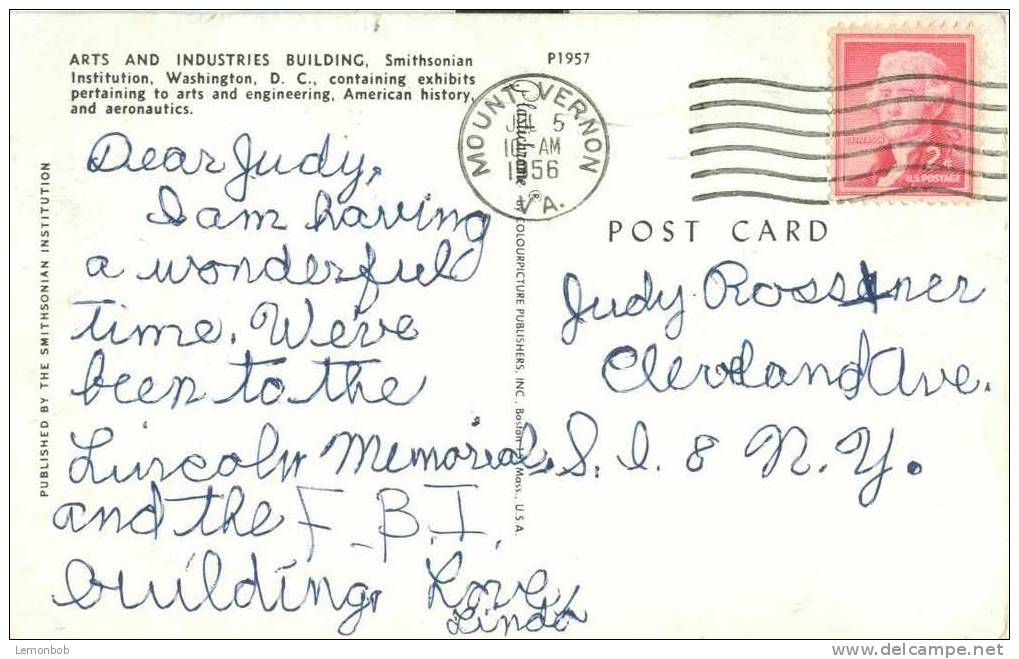 ARTS AND INDUSTRIES BUILDING, Smithsonian
Institution, Washington, D. C., containing exhibits
pertaining to arts and engineering, American history,
and aeronautics.
P1957
MOUNT VERNON
JUL 5
10 - AM
1956
VA.
2¢
U.S. POSTAGE
POST CARD
PUBLISHED BY THE SMITHSONIAN INSTITUTION
Plastichrome ® by COLOURPICTURE PUBLISHERS, INC., Boston Mass., U.S.A.
Dear Judy,
I am having
a wonderful
time. We've
been to the
Lincoln Memorial,
and the F.B.I.
building.
Love,
Linda
Judy
Cleveland Ave.
S. I. 8 N. Y.
Lemonbob
www.delcampe.net